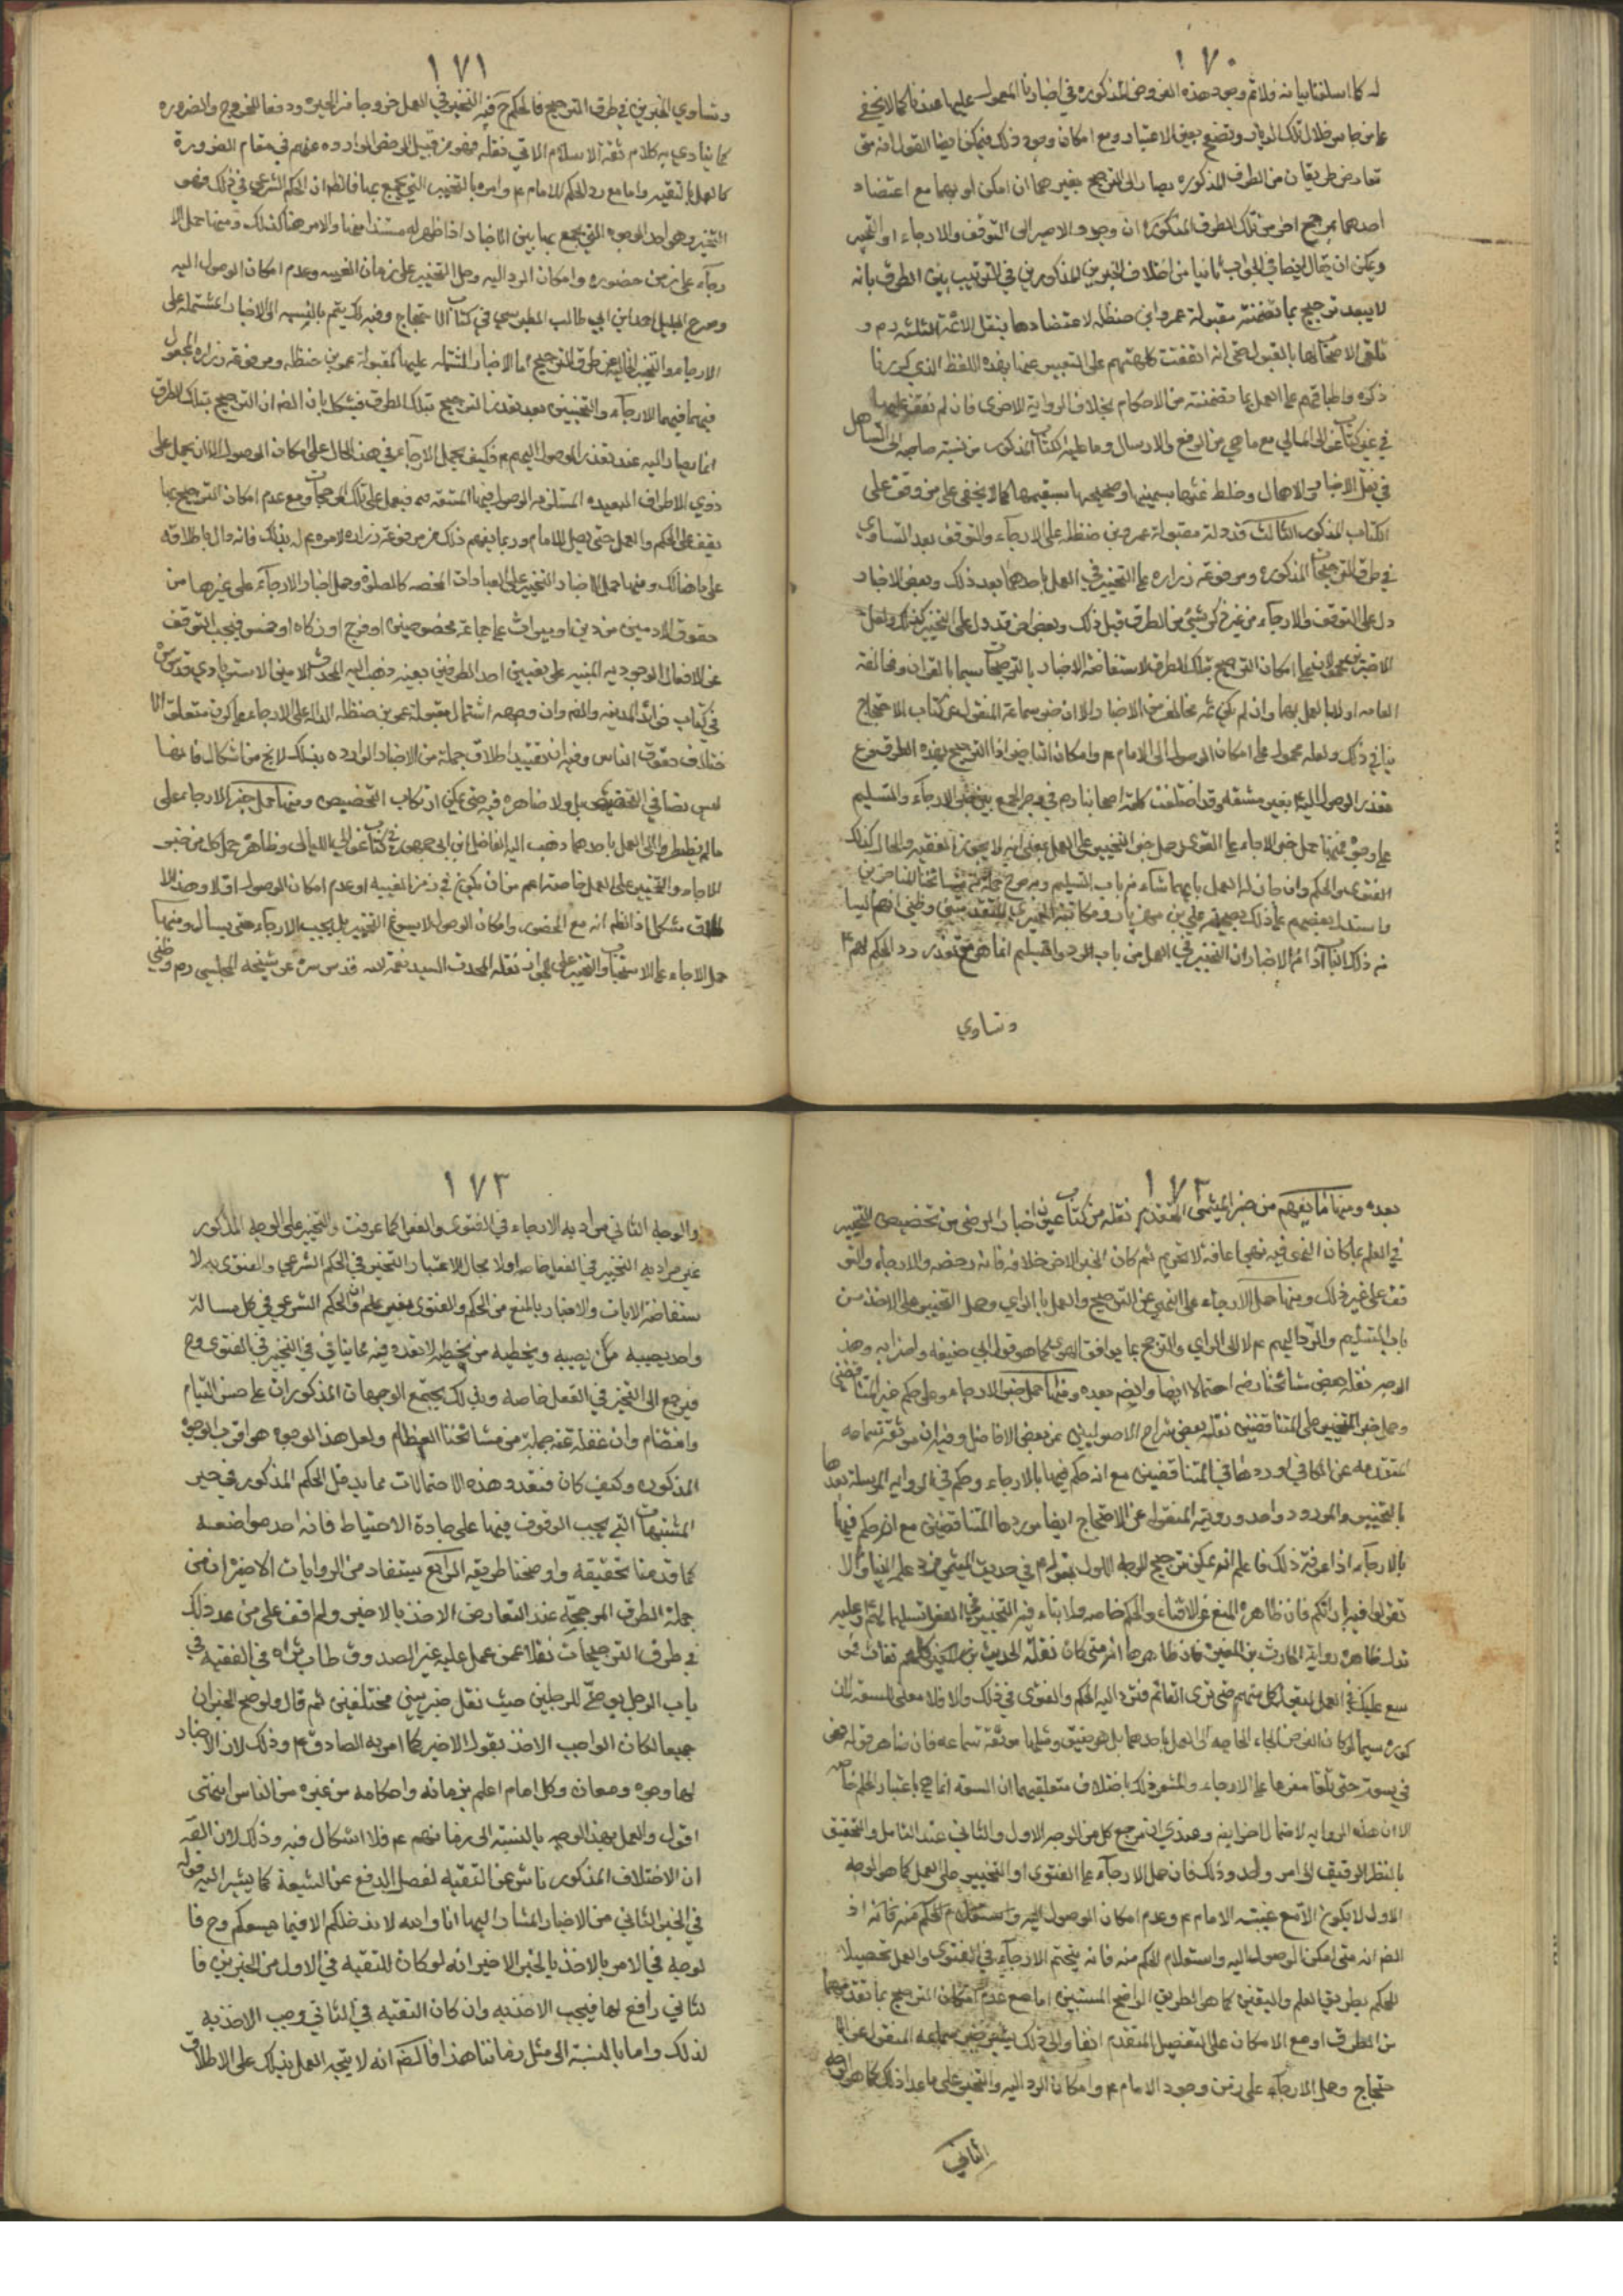 ١٧٠
له كما اسلفنا بيانه فلا تم وجود هذه الفروض المذكوره في اخبارنا المعمول عليها عندنا كما لا يخفى
على من جاس خلال تلك الديار وتصفح بعين الاعتبار ومع امكان وجود ذلك فيمكن ايضا القول انه متى
تعارض طريقان من الطرق المذكوره يصار الى الترجيح بغيرهما ان امكن او بهما مع اعتضاد
احدهما بمرجح اخر من تلك الطرق المذكورة ان وجد والا صير الى التوقف والارجاء او التخيير
ويمكن ان يقال ايضا في الجواب ثانيا من اختلاف الخبرين المذكورين في الترتيب بين الطرق بانه
لا يبعد ترجيح بما تضمنته مقبولة عمرو ابن حنظله لاعتضادها بنقل الائمة الثلثه رم و
تلقي الاصحاب لها بالقبول حتى انه اتفقت كلمتهم على التعبير عنها بهذه اللفظ الذي كررنا
ذكره واطباقهم على العمل بما تضمنته من الاحكام بخلاف الرواية الاخرى فان لم نقف عليها
في غير كتاب غوالي اللئالي مع ما هي من الرفع والارسال وما عليه الكتاب المذكور من نسبة صاحبه الى التساهل
في نقل الاخبار والاهمال وخلط غثها بسمينها وصحيحها بسقيمها كما لا يخفى على من وقف على
الكتاب المذكور الثالث قد دلت مقبولة عمرو بن حنظله على الارجاء والتوقف بعد التساوي
في طرق الترجيحات المذكوره ومرفوعة زراره على التخيير في العمل باحدهما بعد ذلك وبعض الاخبار
دل على التوقف والارجاء من غير ذكر شيئ من الطرق قبل ذلك وبعض اخر قد دل على التخيير كذلك ولعل
الاخيرين محمولان على امكان الترجيح بتلك الطرق لاستفاضة الاخبار بالترجيحات سيما بالقران ومخالفة
العامه او لا بالعمل بهما وان لم يكن ثمه مخالف من الاخبار الا ان خبر سماعة المنقول عن كتاب الاحتجاج
ينافي ذلك ولعله محمول على امكان الوصول الى الامام ع وامكان التاخير اذ الترجيح بهذه الطرق فرع
تعذر الوصول اليه بغير مشقه وقد اختلفت كلمة اصحابنا رم في وجه الجمع بين خبر الارجاء والتسليم
على وجوه فمنها حمل خبر الارجاء على الفتوى وحمل خبر التخيير على العمل بمعنى انه لا يجوز للفقيه والحال كذلك
الفتوى والحكم وان جاز له العمل بايهما شاء من باب التسليم وبه صرح جملة من مشائخنا المتاخرين
واستدل بعضهم على ذلك بصحيحة علي بن مهزيار ومكاتبة الحميري
نه ذلك اذ الاخبار ان التخيير في العمل من باب الرد والتسليم انما هو مع تعذر رد الحكم لهم ع
وتساوي
١٧١
وتساوي الخبرين في طرق الترجيح فالحكم ح فيه التخيير في العمل خروجا من الحيره ودفعا للحروج والضروره
كما ينادي به كلام ثقة الاسلام الاتي نقله فهو من قبيل الرخص الوارده عنهم في مقام الضرورة
كالعمل بالتقيه واما مع رد الحكم للامام ع وامره بالتخيير التي يجمع بها فالظ ان الحكم الشرعي في ذلك هو
التخيير وهي احد الوجوه التي يجمع بها بين الاخبار اذا ظهر له مستندا منها والامر هنا كذلك ومنها حمل الا
رجاء على زمن حضوره وامكان الرد اليه وحمل التخيير على زمان الغيبه وعدم امكان الوصول اليه
وصرح الجليل احمد ابن ابي طالب الطبرسي في كتاب الاحتجاج وفيه انه لا يتم بالنسبه الى الاخبار المشتمله على
الارجاء والتخيير الخاليه عن طرق الترجيح اما الاخبار المشتمله عليهما كمقبولة عمر بن حنظله ومرفوعة زراره المجعول
فيهما الارجاء والتخيير بعد تعذر الترجيح بتلك الطرق فيشكل بان الضم ان الترجيح بتلك الطرق
انما يصار اليه عند تعذر الوصول اليهم ع فكيف يحمل الارجاء في هذه الحال على امكان الوصول الا ان يحمل على
ذوي الاطراف البعيده المستلزمه الوصول فيها المشقه فيعمل على تلك المرجحات ومع عدم امكان الترجيح بها
يقف على الحكم والعمل حتى يصل للامام وربما يفهم ذلك من مرفوعة زراره لامره ع له بذلك فانه دال باطلاقه
على ما هنالك ومنها حمل الاخبار التخيير على العبادات المحضه كالصلوة وحمل اخبار الارجاء على غيرها من
حقوق الادميين من دين او ميراث على جماعة مخصوصين او فرج او زكاه او خمس فيجب التوقف
عن الافعال الوجوديه المبنيه على تعيين احد الطرفين بعينه ذهب اليه المحدث الامين الاستربادي قدس سره
في كتاب فوائد المدنيه والضم وان وجهه اشتمال مقبولة عمر بن حنظله الداله على الارجاء على كون متعلق الا
ختلاف حقوق الناس وفيه ان تقييد اطلاق جملة من الاخبار الوارده بذلك لا يخ من اشكال فانها
ليس نصا في التخصيص بل ولا ظاهره فيه حتى يمكن ارتكاب التخصيص ومنها حمل خبر الارجاء على
ما لم يضطر الى العمل باحدهما ذهب اليه الفاضل ابن ابي جمهور في كتاب غوالي اللئالي وظاهره حمل كل من خبر
الارجاء والتخيير على العمل خاصة اعم من ان يكون في زمن الغيبه او عدم امكان الوصول او لا وهذا الا
طلاق مشكل اذ الظم انه مع الحضور وامكان الوصول لا يسوغ التخيير بل يجب الارجاء حتى يسال ومنها
حمل الارجاء على الاستحباب والتخيير على الجواز نقله المحدث السيد نعمة الله قدس سره عن شيخه المجلسي رم وظني
١٧٢
بعده ومنها ما يفهم من خبر الميثمي المتقدم نقله من كتاب عيون اخبار الرضى من تخصيص التخيير
في العلم بما كان النهي فيه نهي اعافة لا تحريم ثم كان الخبر الاخر خلافه فانه رخصه والارجاء والتو
قف على غير ذلك ومنها حمل الارجاء على النهي عن الترجيح والعمل بالراي وحمل التخيير على الاخذ من
باب التسليم والرد اليهم ع لا الى الراي والترجيح بما يوافق الهوى كما هو قول ابي حنيفه واضرابه وهذا
الوجه نقله بعض مشائخنا رضه احتمالا ايضا وايضم بعده ومنها حمل خبر الارجاء على حكم خبر المتناقضين
وحمل خبر التخيير على المتناقضين نقله بعض شراح الاصوليين عن بعض الافاضل وفيه ان موثقة سماعه
المتقدمه عن الكافي اوردها في المتناقضين مع انه حكم فيها بالارجاء وحكم في الرواية المرسله بعدها
بالتخيير والمورد واحد وروايته المنقول عن الاحتجاج ايضا موردها المتناقضين مع انه حكم فيها
بالارجاء اذا عرفت ذلك فاعلم انه يمكن ترجيح الوجه الاول بقوله ع في حديث الميثمي فردوا علمه الينا ولا
تقولوا فيه بارائكم فان ظاهره المنع عن الافتاء والحكم خاصه ولا ينافيه التخيير في العمل تسليما لهم وعليه
تدل ظاهره رواية الحارث بن المغيره فان ظاهرها انه متى كان نقلة الحديث كلهم ثقات فمو
سع عليك في العمل بقول كل منهم حتى ترى القائم فترد اليه الحكم والفتوى في ذلك والا فلا معنى للسعه المذ
كوره سيما لو كان الغرض الجاء الحاجه الى العمل باحدهما بل هو ضيق ومثلها موثقة سماعه فان ظاهر قوله فهو
في سعة حتى تلقاه مفرها على الارجاء والمشعر ذلك باختلاف متعلقيهما ان السعه انما هي باعتبار الحكم خاصه
الا ان هذه الروايه لاحتمال اخر اينم وعندي ان مرجع كل من الوجه الاول والثاني عند التامل والتحقيق
بالنظر الدقيق الى امر واحد وذلك فان حمل الارجاء على الفتوى او التخيير على العمل كما هو الوجه
الاول لا يكون الا مع غيبة الامام ع وعدم امكان الوصول اليه واستعلام الحكم منه فانه اذ
الضم انه متى امكن الوصول اليه واستعلام الحكم منه فانه يتحتم الارجاء في الفتوى والعمل تحصيلا
للحكم بطريق العلم واليقين كما هو الطريق الواضح المستبين اما مع عدم امكان الترجيح بما تقدمهما
من الطرق او مع الامكان على التفصيل المتقدم انفا والى ذلك يشير خبر سماعه المنقول عن الا
حتجاج وحمل الارجاء على زمن وجود الامام ع وامكان الرد اليه والتخيير على ما عدا ذلك كما هو الوجه
الثاني
١٧٣
والوجه الثاني مراد به الارجاء في الفتوى والفعل كما عرفت والتخيير على الوجه المذكور
غير مراد به التخيير في الفعل خاصه اولا مجال لاعتبار التخيير في الحكم الشرعي والفتوى به لا
ستفاضة الايات والاخبار بالمنع من الحكم والفتوى بغير علم وان الحكم الشرعي في كل مسالة
واحد يصيبه من يصيبه ويخطيه من يخطيه لا تعدد فيه مما ينافي في التخيير في الفتوى وح
فيرجع الى التخيير في الفعل خاصه وبذلك يجتمع الوجهان المذكوران على حسن التيام
وانتظام وان غفل عنه جملة من مشائخنا العظام ولعل هذا الوجه هو اقرب الوجوه
المذكوره وكيف كان فتعدد هذه الاحتمالات مما يدخل الحكم المذكور في حيز
المشتبهات التي يجب الوقوف فيها على جادة الاحتياط فانه احد مواضعه
كما قدمنا تحقيقه واوضحنا طريقه الرابع يستفاد من الروايات الاخيره ان من
جملة الطرق المرجحة عند التعارض الاخذ بالاخير ولم اقف على من عد ذلك
في طرق الترجيحات نقلا عمن عمل عليه غير الصدوق طاب ثراه في الفقيه في
باب الرجل يوصى للرجلين حيث نقل خبرين مختلفين ثم قال ولو صح الخبران
جميعا لكان الواجب الاخذ بقول الاخير كما امر به الصادق ع وذلك لان الاخبار
لها وجوه ومعان وكل امام اعلم بزمانه واحكامه من غيره من الناس انتهى
اقول والعمل بهذا الوجه بالنسبة الى زمانهم ع فلا اشكال فيه وذلك لان الظم
ان الاختلاف المذكور ناش عن التقيه لقصد الدفع عن الشيعة كما يشير اليه قوله
في الخبر الثاني من الاخبار المشار اليها انا والله لا ندخلكم الا فيما يسعكم وح فا
لوجه في الامر بالاخذ بالخبر الاخير انه لو كان للتقيه في الاول من الخبرين فا
لثاني رافع لها فيجب الاخذ به وان كان التقيه في الثاني وجب الاخذ به
لذلك واما بالنسبة الى مثل زماننا هذا فالضم انه لا يتجه العمل بذلك على الاطلاق